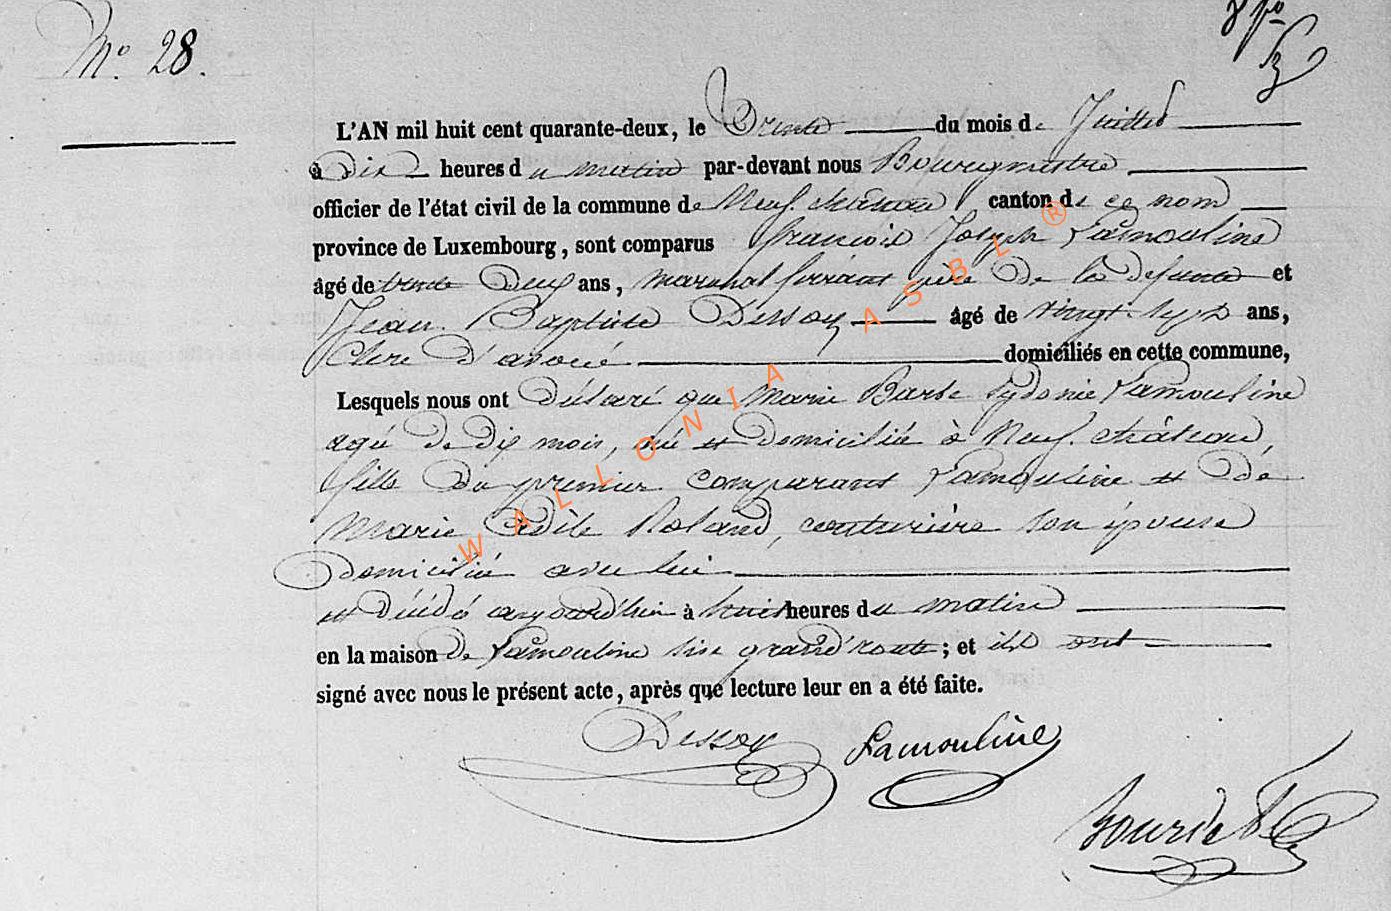 N° 28.
L'AN mil huit cent quarante-deux, le Trente du mois de Juillet
à Dix heures du matin par-devant nous Bourgmestre
officier de l'état civil de la commune de Neufchâteau canton de ce nom
province de Luxembourg, sont comparus François Joseph Lamouline
âgé de trente Deux ans, marechal ferrant père De la defunte et
Jean Baptiste Dessoy âgé de vingt-sept ans,
Clerc d'avoué domiciliés en cette commune,
Lesquels nous ont Déclaré que Marie Barbe Sydonie Lamouline
agé De dix mois, née et Domiciliée à Neufchâteau,
fille Du premier comparant Lamouline et De
Marie Adèle Roland, couturière son épouse
Domiciliée avec lui
est Décédé aujourd'hui à huit heures du matin
en la maison De Lamouline sise grand'route; et ils ont
signé avec nous le présent acte, après que lecture leur en a été faite.
Dessoy Lamouline
WALLONIA ASBL ®